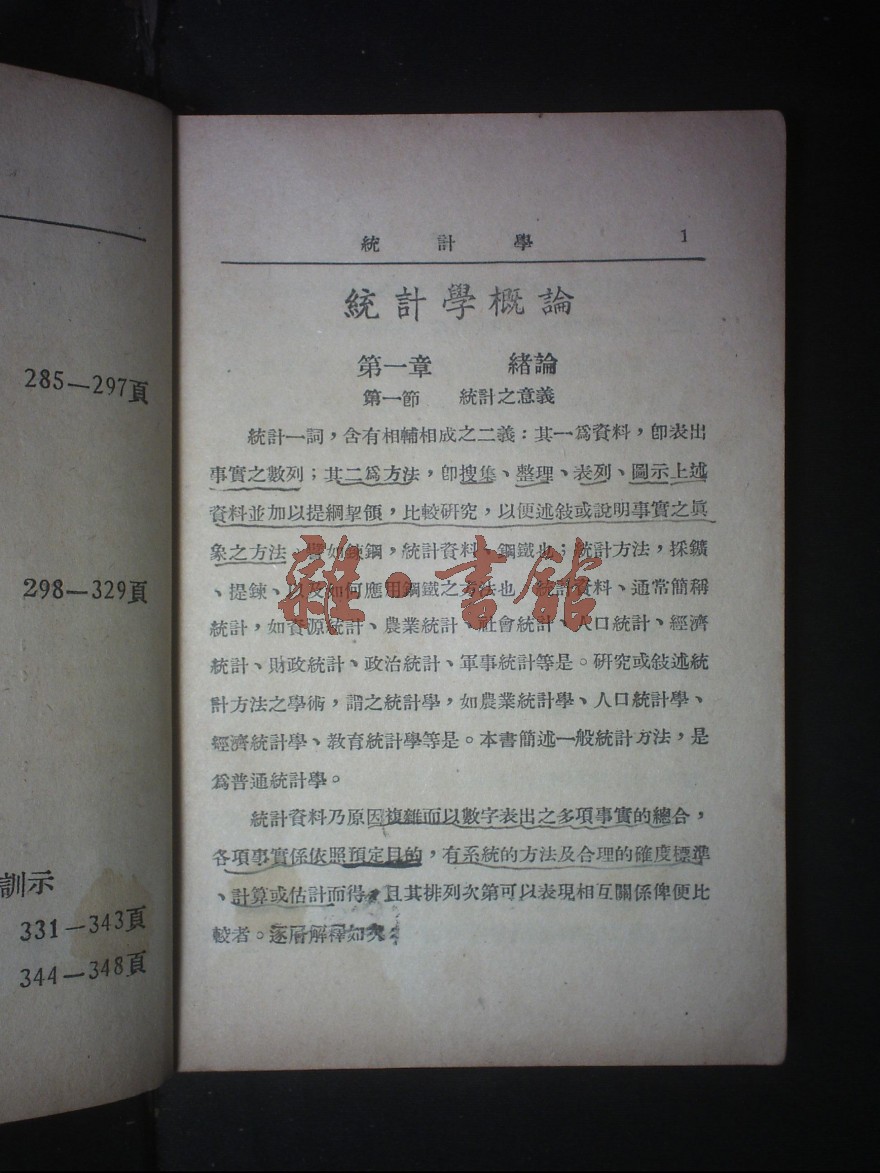 285—297頁
298—329頁
訓示
331—343頁
344—348頁
統計學 1
統計學概論
第一章 緒論
第一節 統計之意義
統計一詞，含有相輔相成之二義：其一爲資料，卽表出
事實之數列；其二爲方法，卽搜集、整理、表列、圖示上述
資料並加以提綱挈領，比較研究，以便述敍或說明事實之眞
象之方法。譬如鍊鋼，統計資料、鋼鐵也；統計方法，採鑛
、提鍊、以及如何應用鋼鐵之方法也。統計資料、通常簡稱
統計，如資源統計、農業統計、社會統計、人口統計、經濟
統計、財政統計、政治統計、軍事統計等是。研究或敍述統
計方法之學術，謂之統計學，如農業統計學、人口統計學、
經濟統計學、敎育統計學等是。本書簡述一般統計方法，是
爲普通統計學。
統計資料乃原因複雜而以數字表出之多項事實的總合，
各項事實係依照預定目的，有系統的方法及合理的確度標準
、計算或估計而得，且其排列次第可以表現相互關係俾便比
較者。逐層解釋如次
雜·書館